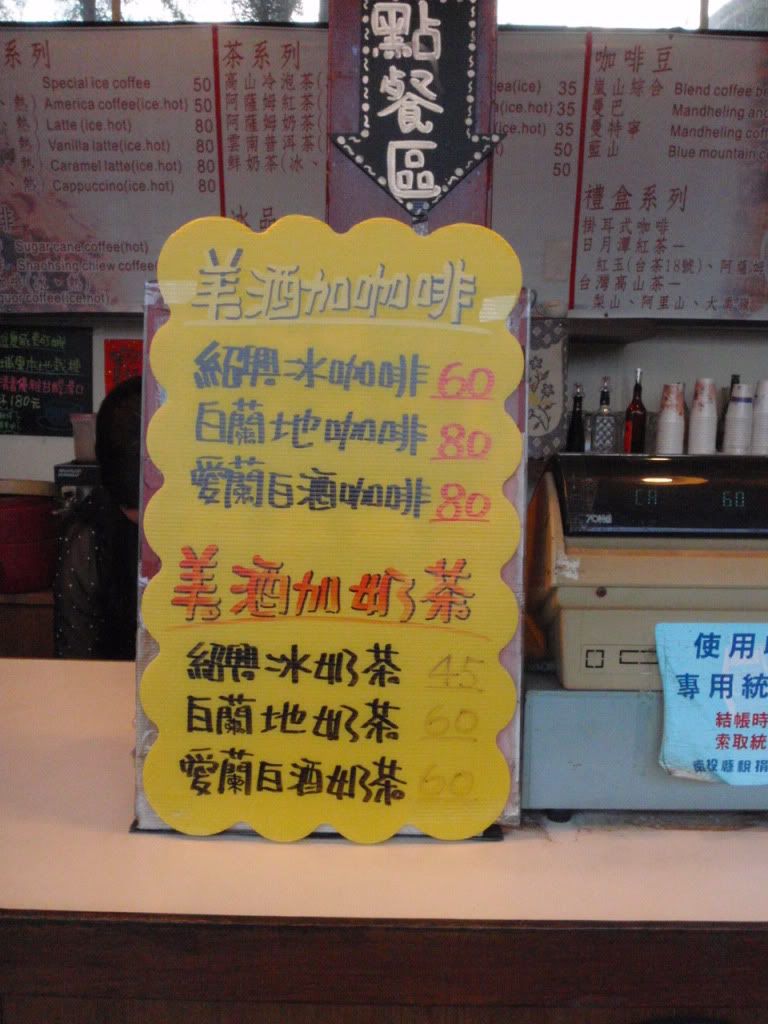 點餐區
系列
Special ice coffee 50
熱) America coffee(ice.hot) 50
熱) Latte (ice.hot) 80
熱) Vanilla latte(ice.hot) 80
熱) Caramel latte(ice.hot) 80
熱) Cappuccino(ice.hot) 80
Sugarcane coffee(hot)
Shaohsing chiew coffee
coffee(ice.hot)
茶系列
高山冷泡茶(
阿薩姆紅茶(
阿薩姆奶茶(
雲南普洱茶(
鮮奶茶(冰、
冰品
ea(ice) 35
(ice.hot) 35
(ice.hot) 35
50
50
咖啡豆
嵐山綜合 Blend coffee be
曼巴 Mandheling and
曼特寧 Mandheling coff
藍山 Blue mountain c
禮盒系列
掛耳式咖啡
日月潭紅茶—
紅玉(台茶18號)、阿薩姆
台灣高山茶—
梨山、阿里山、大禹嶺
180元
美酒加咖啡
紹興冰咖啡 60
白蘭地咖啡 80
愛蘭白酒咖啡 80
美酒加奶茶
紹興冰奶茶 45
白蘭地奶茶 60
愛蘭白酒奶茶 60
CA 60
使用
專用統
結帳時
索取統
南投縣稅捐